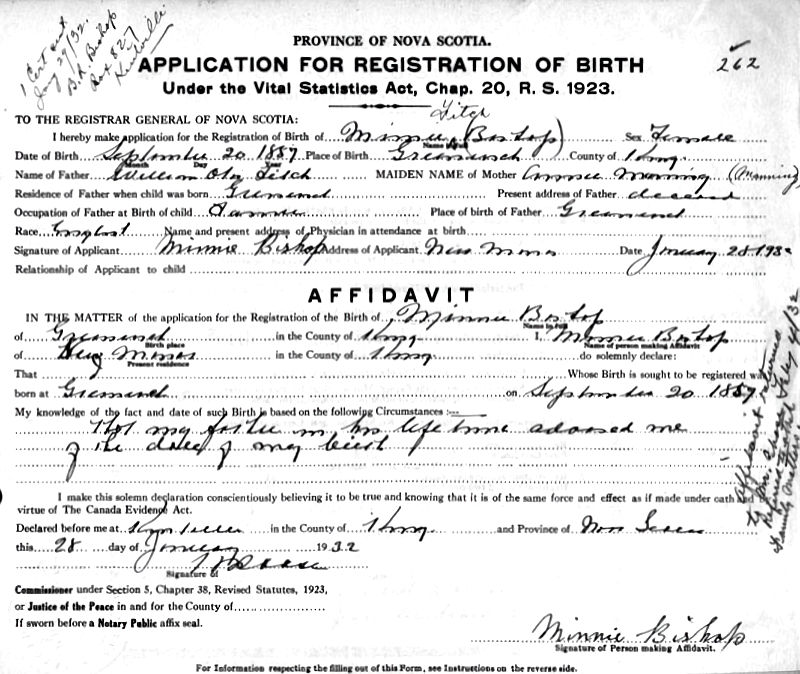 1 Cert sent
Jany 29/32.
B. A. Bishop
Box 827
Kentville
262
PROVINCE OF NOVA SCOTIA.
APPLICATION FOR REGISTRATION OF BIRTH
Under the Vital Statistics Act, Chap. 20, R. S. 1923.
TO THE REGISTRAR GENERAL OF NOVA SCOTIA:
Fitch
I hereby make application for the Registration of Birth of Minnie (Bishop) Sex Female
Name in full
Date of Birth September 20 1887 Place of Birth Greenwich County of Kings
Month Day Year
Name of Father William Fitch MAIDEN NAME of Mother Annie Manning (Manning)
Residence of Father when child was born Greenwich Present address of Father deceased
Occupation of Father at Birth of child Farmer Place of birth of Father Greenwich
Race English Name and present address of Physician in attendance at birth
Signature of Applicant Minnie Bishop Address of Applicant New Minas Date January 28 1932
Relationship of Applicant to child
AFFIDAVIT
IN THE MATTER of the application for the Registration of the Birth of Minnie Bishop
Name in full
of Greenwich in the County of Kings I, Minnie Bishop
Birth place Name of person making Affidavit
of New Minas in the County of Kings do solemnly declare:
Present residence
That Whose Birth is sought to be registered was
born at Greenwich on September 20 1887
My knowledge of the fact and date of such Birth is based on the following Circumstances:—
That my father in his lifetime advised me
of the date of my birth
I make this solemn declaration conscientiously believing it to be true and knowing that it is of the same force and effect as if made under oath and by
virtue of The Canada Evidence Act.
Declared before me at Kentville in the County of Kings and Province of Nova Scotia
this 28 day of January 1932
Signature of
Commissioner under Section 5, Chapter 38, Revised Statutes, 1923,
or Justice of the Peace in and for the County of
If sworn before a Notary Public affix seal.
Minnie Bishop
Signature of Person making Affidavit.
For Information respecting the filling out of this Form, see Instructions on the reverse side.
affidavit returned
Feby 4/32